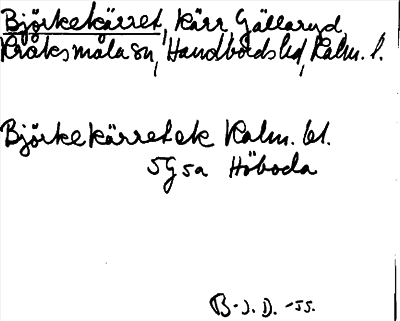 Björkekärret, kärr, Gällaryd,
Kråksmåla sn, Handbörds hd, Kalm. l.
Björkekärret ek Kalm. bl.
5G 5a Höboda
B-J. D. -55.